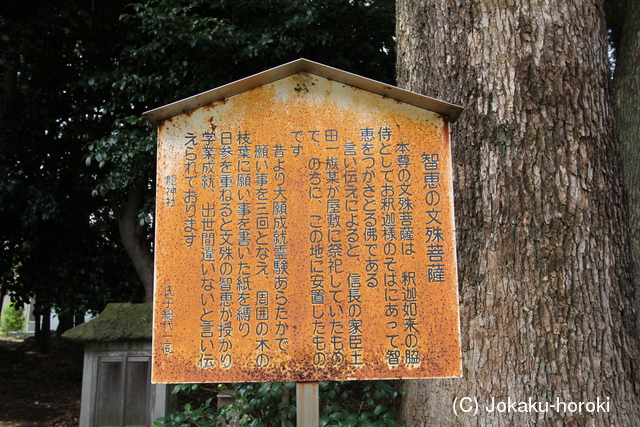 智恵の文殊菩薩
本尊の文殊菩薩は 釈迦如来の脇
侍としてお釈迦様のそばにあって智
恵をつかさどる佛である
言い伝えによると、信長の家臣土
田一族某が屋敷に祭祀していたもの
で、のちに この地に安置したもの
です
昔より大願成就霊験あらたかで
願い事を三回となえ 周囲の木の
枝葉に願い事を書いた紙を縛り、
日参を重ねると文殊の智恵が授かり
学業成就 出世間違いないと言い伝
えられております
神社
氏子総代一同
(C) Jokaku-horoki